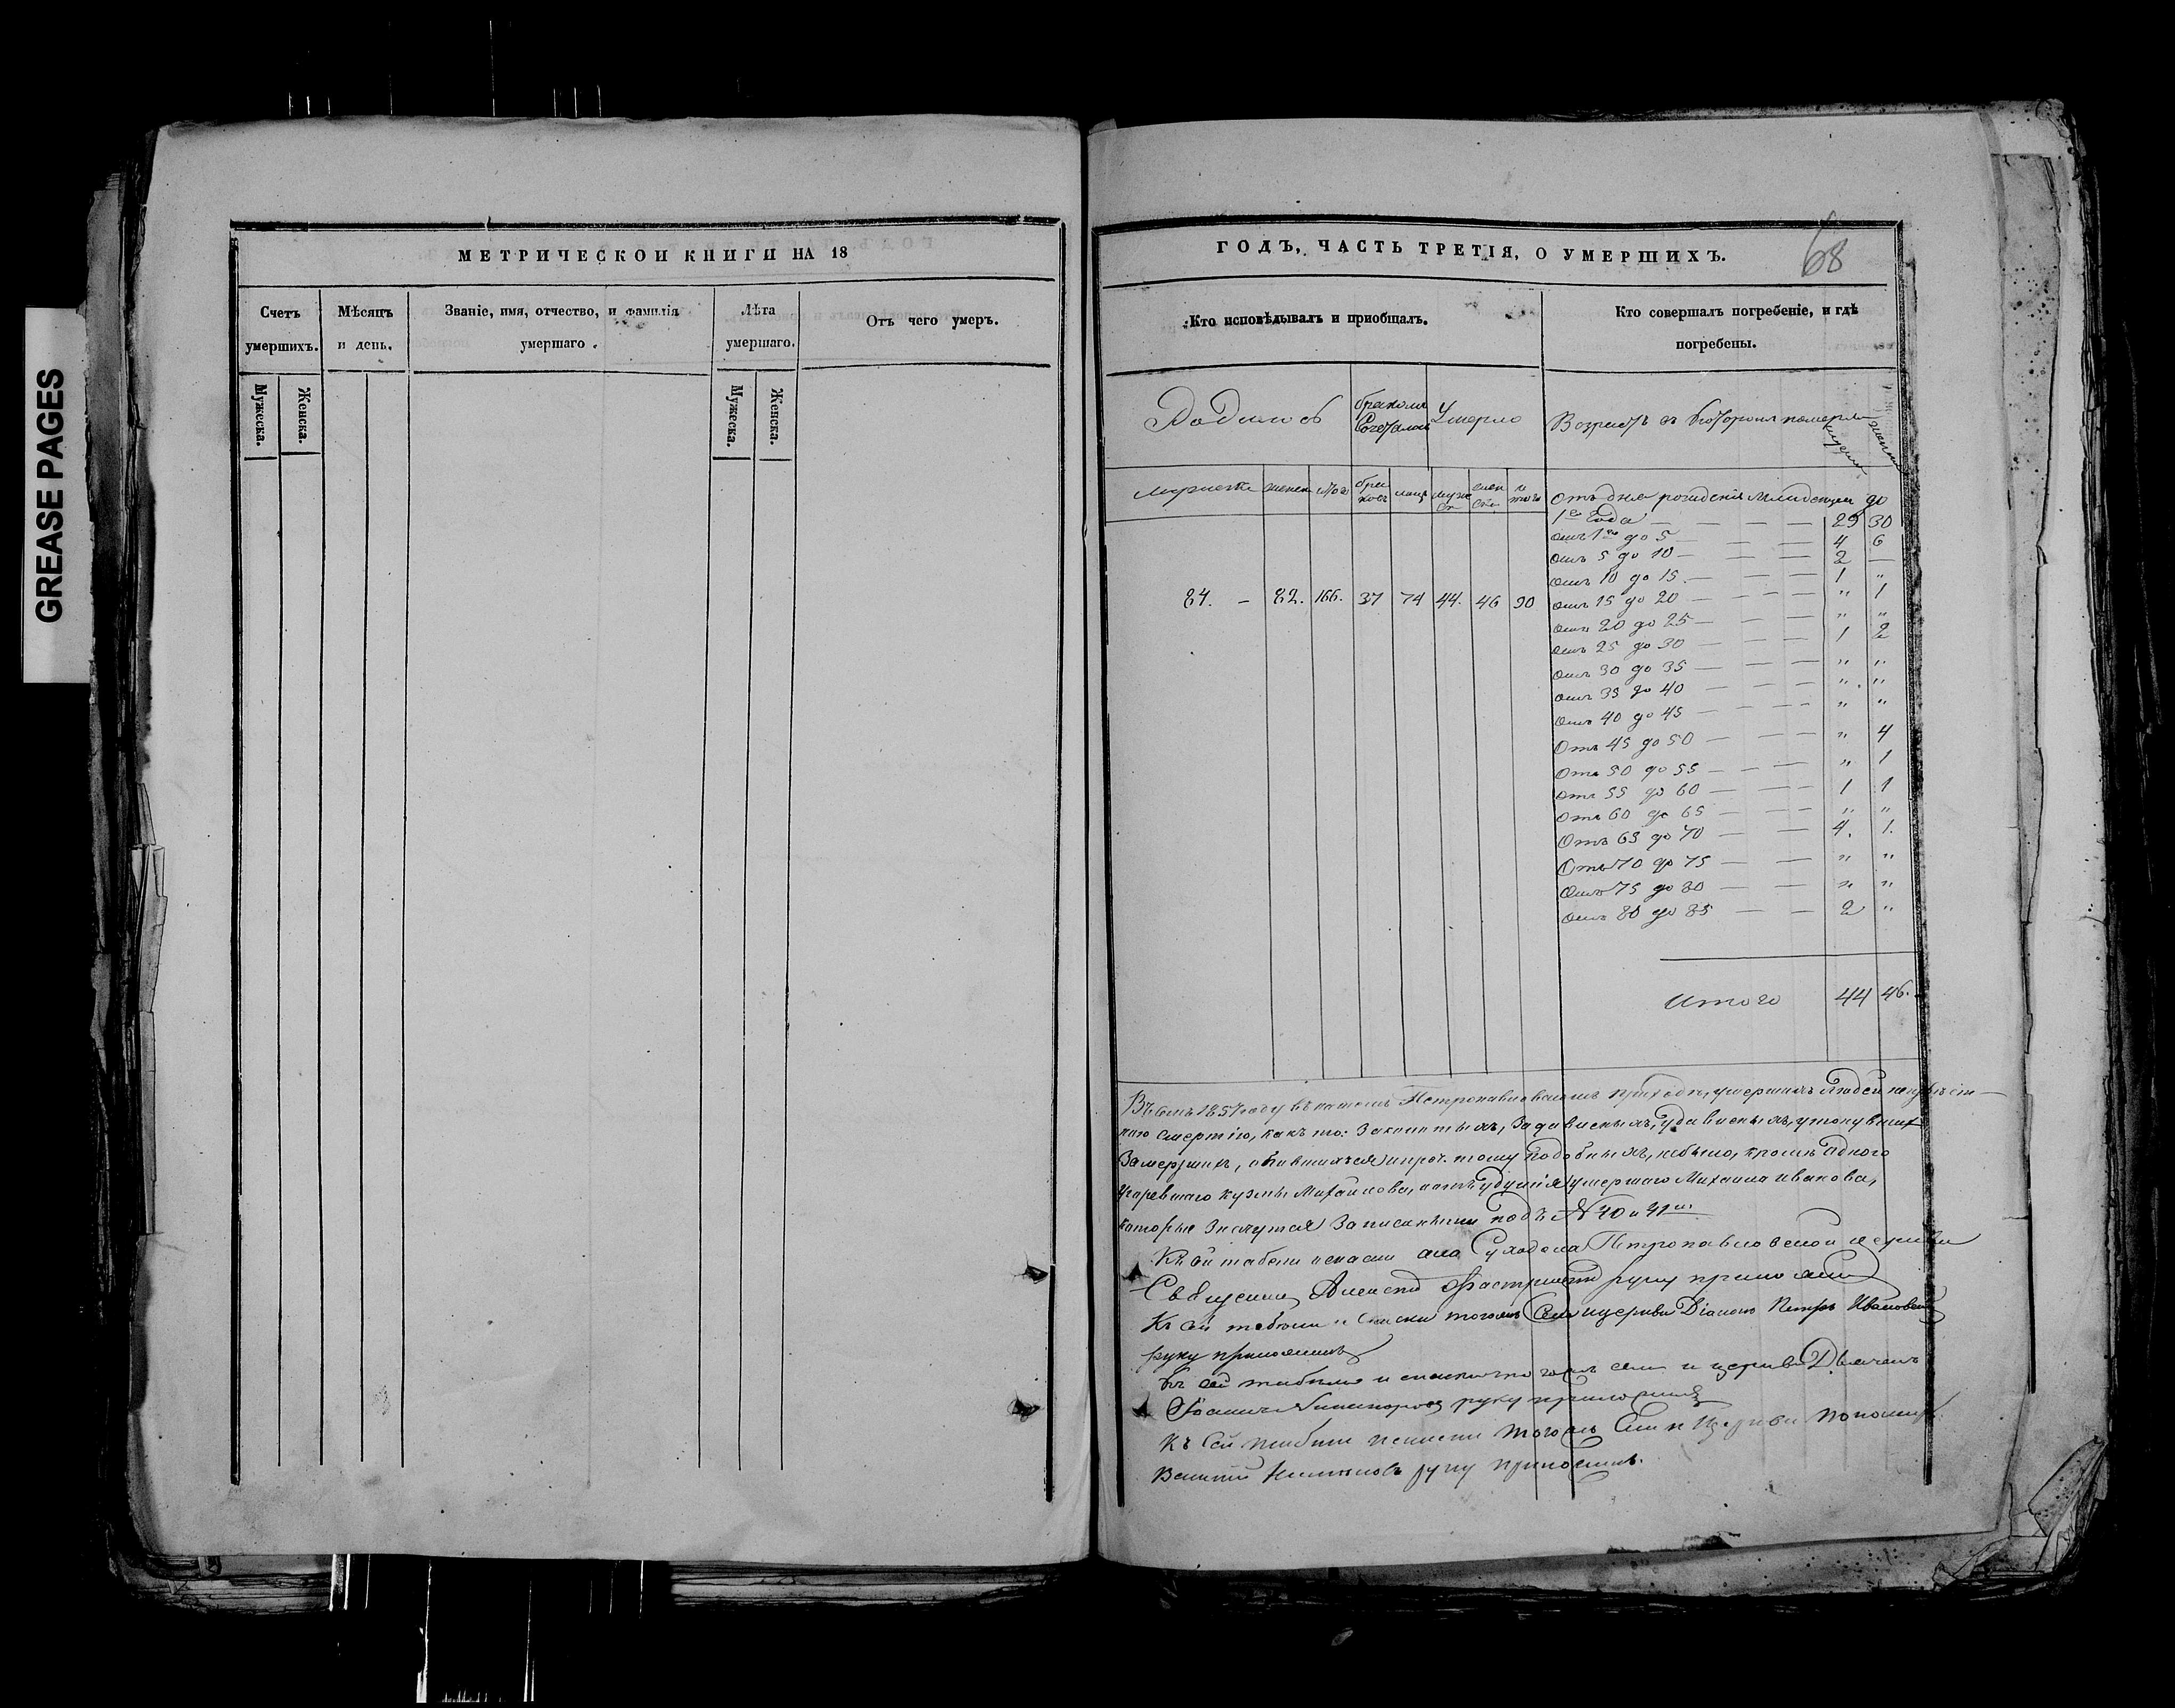 GREASE PAGES
МЕТРИЧЕСКОЙ КНИГИ НА 18
Счетъ умершихъ.
Мѣсяцъ и день.
Званіе, имя, отчество, и фамилія умершаго.
Лѣта умершаго.
Отъ чего умеръ.
Мужеска.
Женска.
Мужеска.
Женска.
ГОДЪ, ЧАСТЬ ТРЕТІЯ, О УМЕРШИХЪ.
68
Кто исповѣдывалъ и пріобщалъ.
Кто совершалъ погребеніе, и гдѣ погребены.
Умерло
Возрастъ въ
84. – 82. 166. 37 74 44. 46 90
отъ дня рожденія младенцы до
1го года — — — — 29 30
отъ 1го до 5 — — — 4 6
отъ 5 до 10 — — — 2 —
отъ 10 до 15. — — — 1 "
отъ 15 до 20 — — — " 1
отъ 20 до 25 — — — " "
отъ 25 до 30 — — — 1 2
отъ 30 до 35 — — — " "
отъ 35 до 40 — — — " "
отъ 40 до 45 — — — " "
Отъ 45 до 50 — — — " 4
Отъ 50 до 55 — — — " 1
отъ 55 до 60 — — — 1 1
Отъ 60 до 65 — — — " "
Отъ 65 до 70 — — 4. 1.
Отъ 70 до 75 — — " "
Отъ 75 до 80 — — " "
отъ 80 до 85 — — 2 "
Итого 44 46.
1857 году въ нашемъ Петропавловскомъ приходѣ, умершихъ людей
смертію, какъ то: задавленыхъ, удавленыхъ, утонувшихъ
Замерзшихъ, опившихся и проч. тому подобныхъ, небыло, кромѣ одного
Угоревшаго Кузмы Михайлова, умершаго Михаила Иванова,
которые Значутся Записанными подъ № 40 и 41
Къ сей табели села Петропавловской церкви
Священникъ Алексій руку приложилъ
Къ сей табели и тогожъ Села и церкви Діаконъ Петръ Ивановъ
руку приложилъ
Къ сей табели и тогожъ села и церкви Дьячекъ
руку приложилъ
Къ Сей табели тогожъ Села и Церкви пономарь
руку приложилъ.